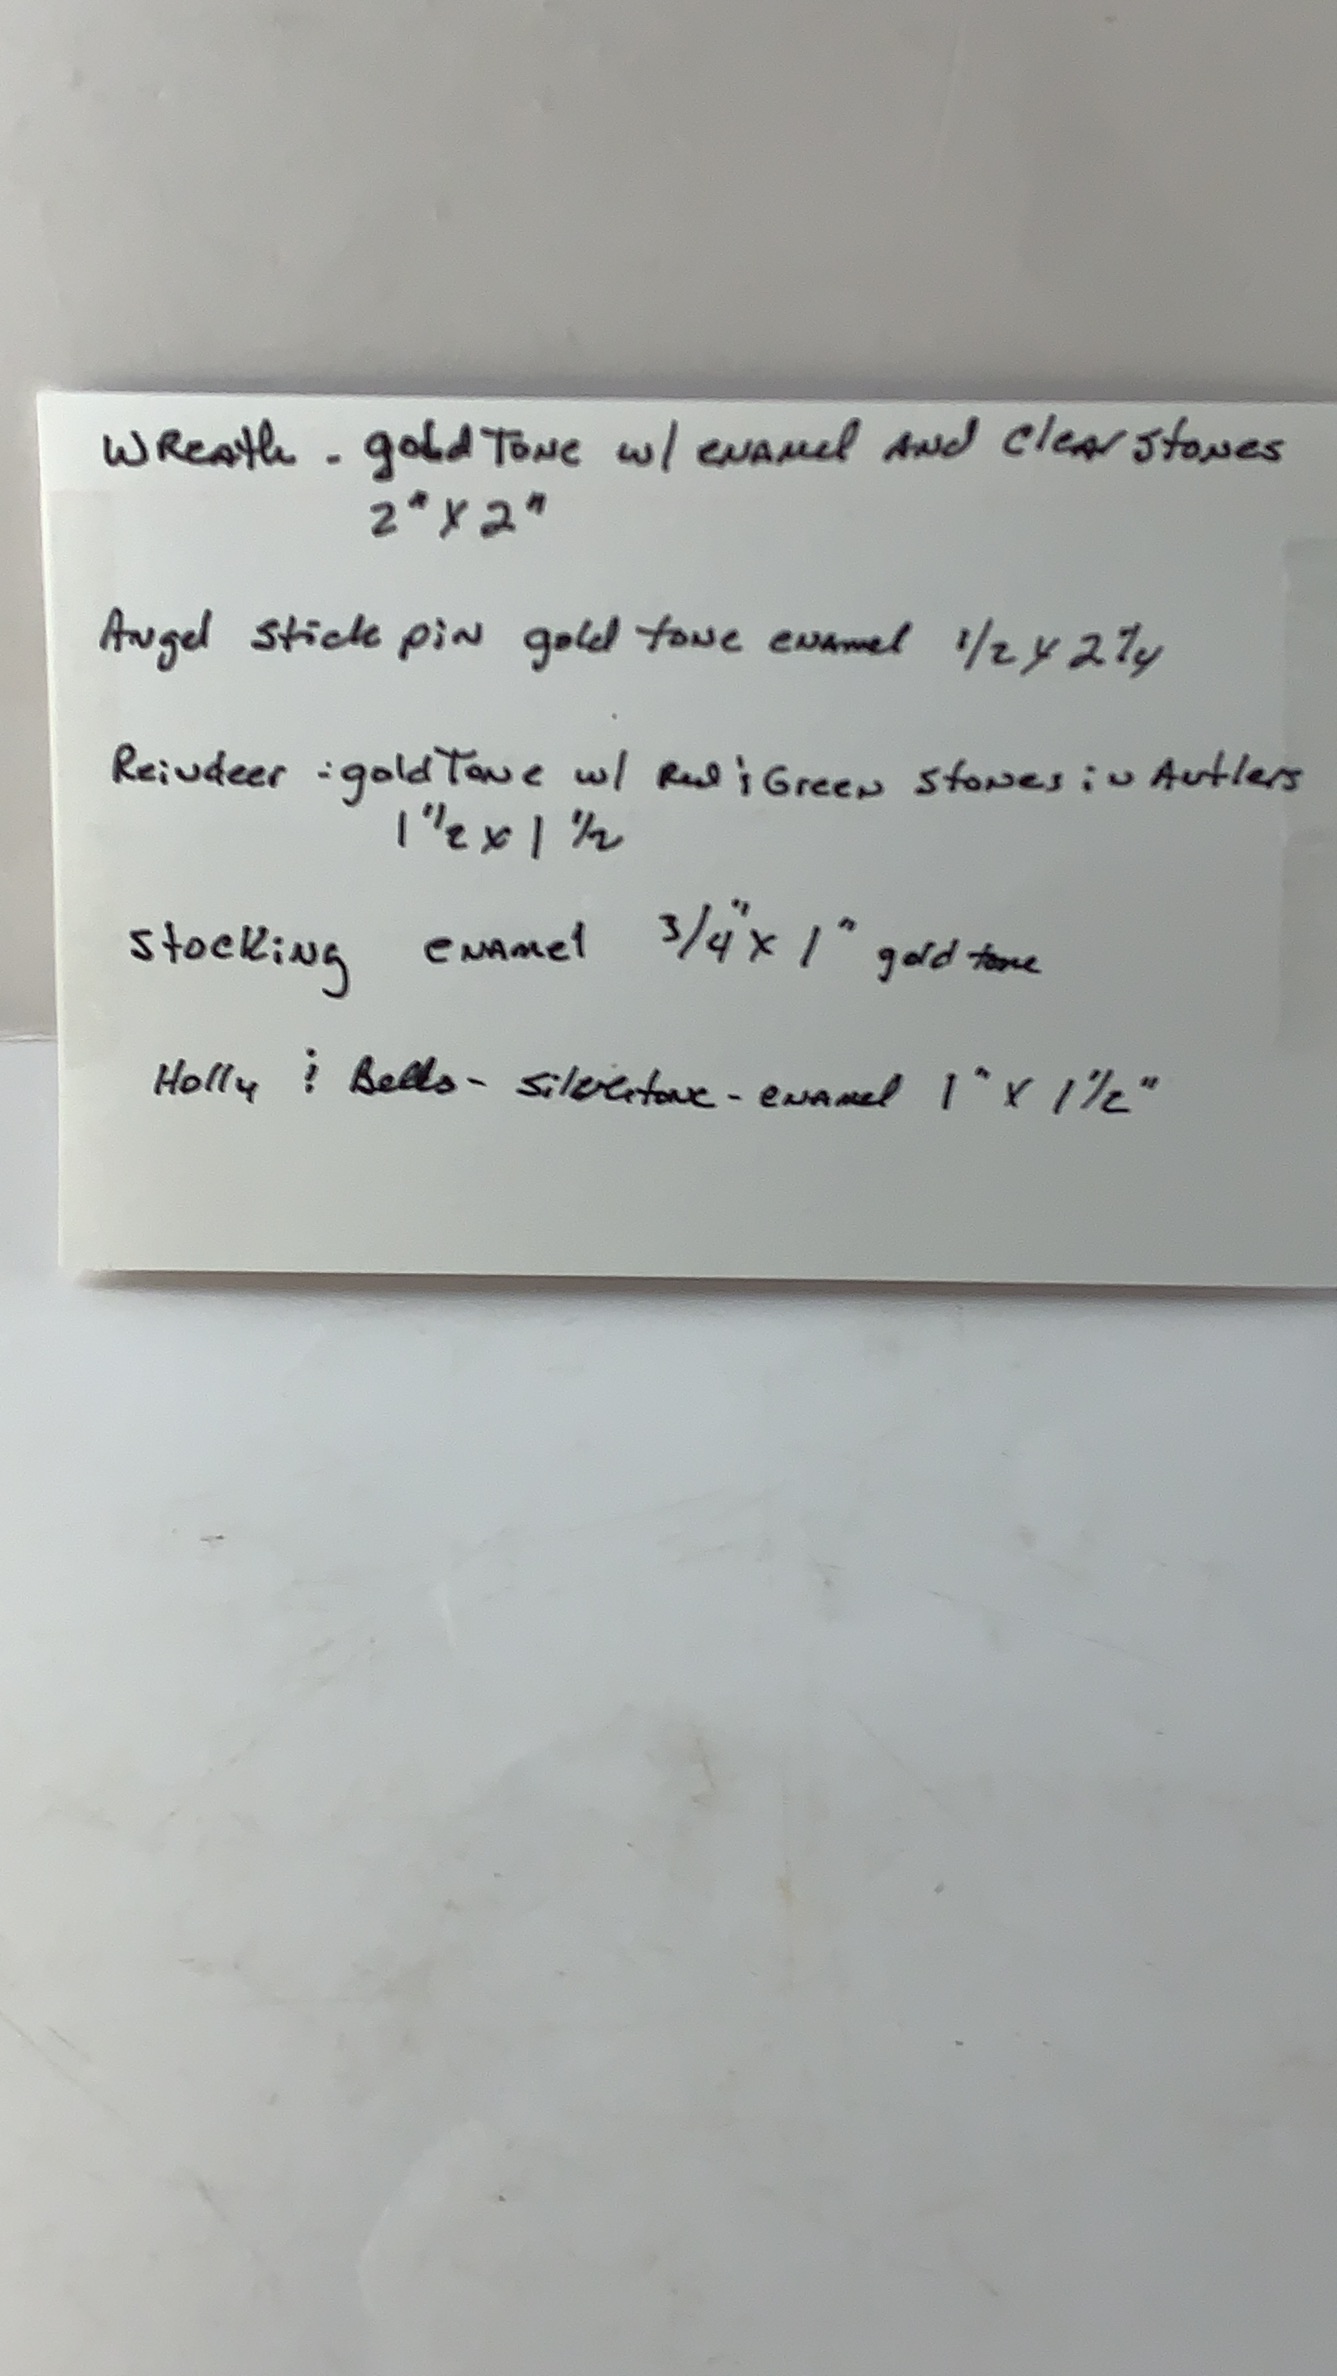 Wreath - gold Tone w/ enamel AND Clear Stones
2" x 2"
Angel stick pin gold tone enamel 1/2 x 2 1/4
Reindeer - gold Tone w/ Red & Green Stones in Antlers
1 1/2 x 1 1/2
Stocking enamel 3/4" x 1" gold tone
Holly & Bells - silvertone - enamel 1" x 1 1/2"